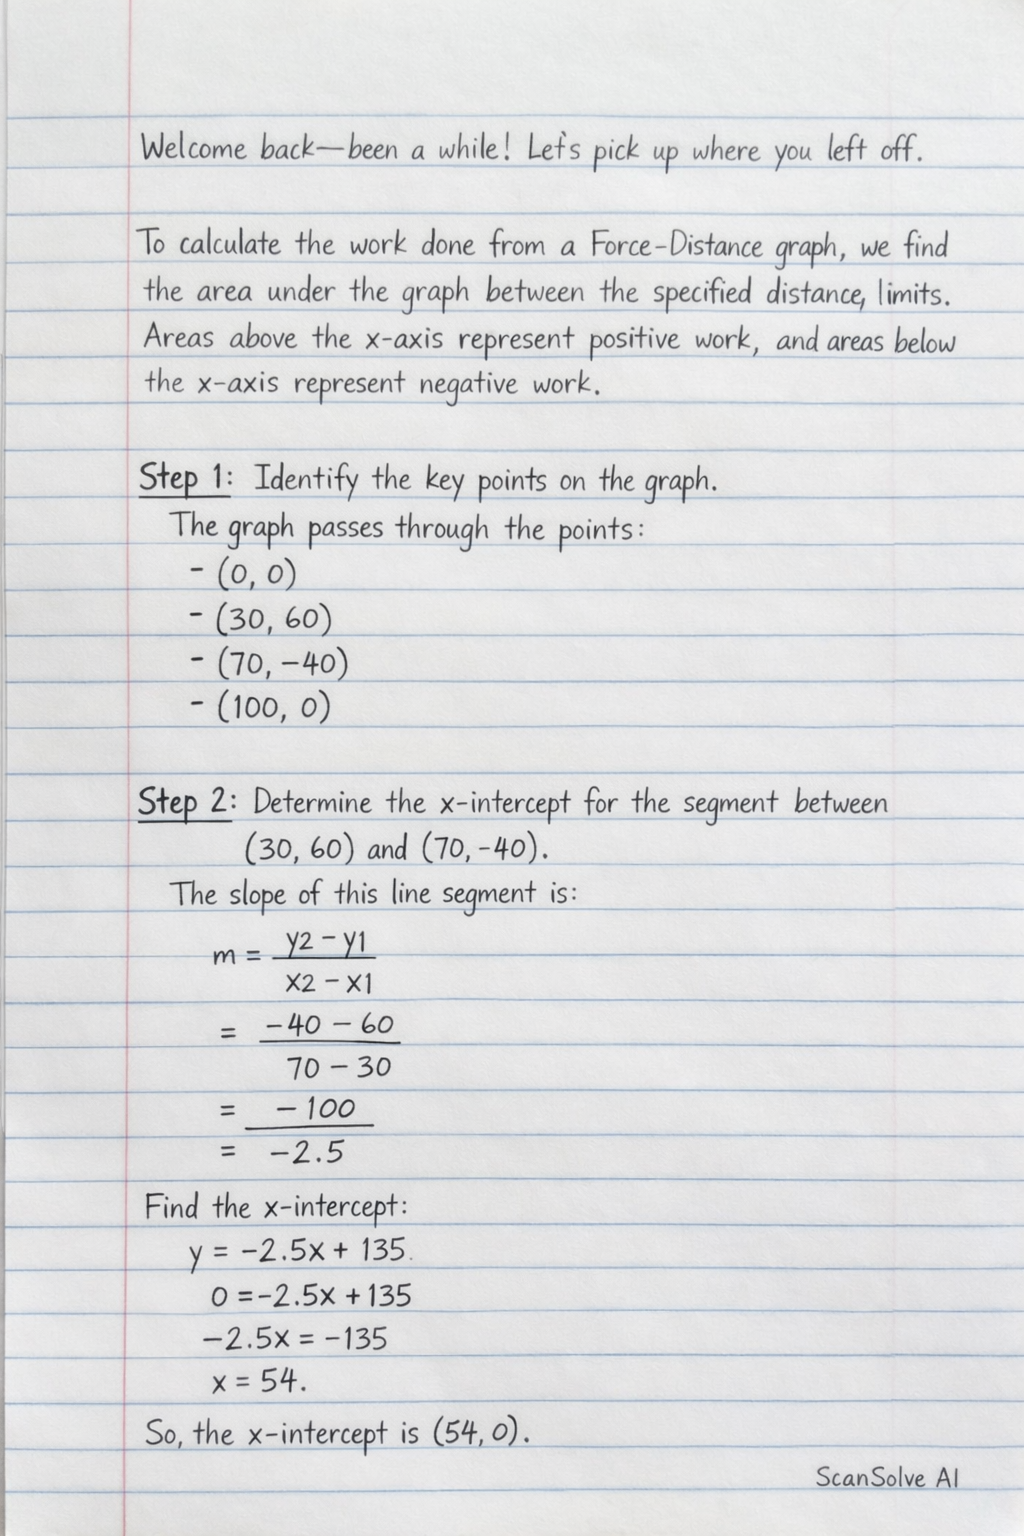 Welcome back—been a while! Let's pick up where you left off.
To calculate the work done from a Force-Distance graph, we find
the area under the graph between the specified distance, limits.
Areas above the x-axis represent positive work, and areas below
the x-axis represent negative work.
Step 1: Identify the key points on the graph.
The graph passes through the points:
- (0, 0)
- (30, 60)
- (70, -40)
- (100, 0)
Step 2: Determine the x-intercept for the segment between
(30, 60) and (70, -40).
The slope of this line segment is:
m = y2 - y1
x2 - x1
= -40 - 60
70 - 30
= -100
= -2.5
Find the x-intercept:
y = -2.5x + 135.
0 = -2.5x + 135
-2.5x = -135
x = 54.
So, the x-intercept is (54, 0).
ScanSolve AI